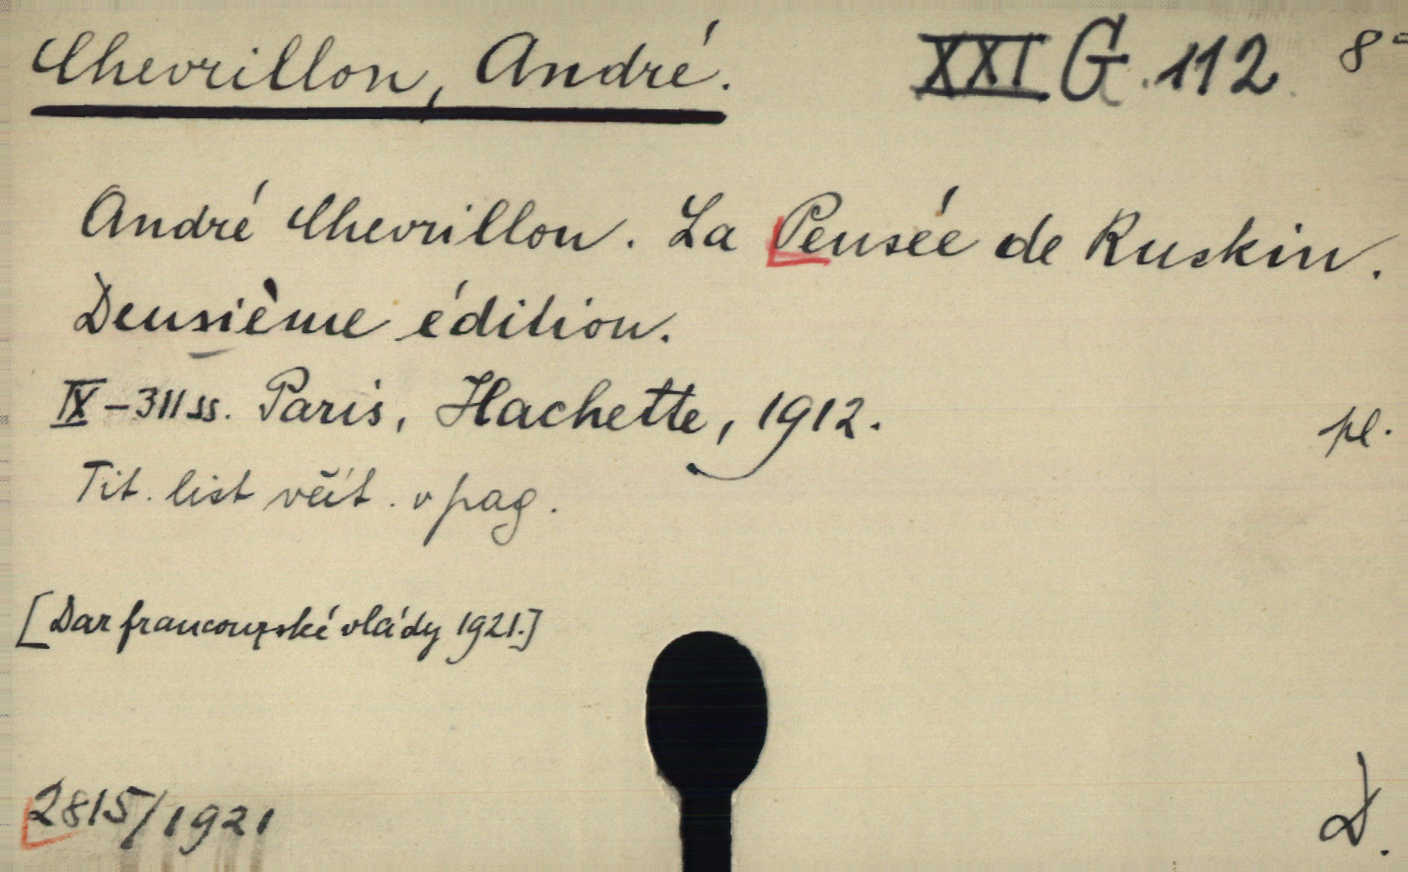 Chevrillon, André. XXI G. 112 8°
André Chevrillon. La Pensée de Ruskin.
Deusième édition.
IX-311 ss. Paris, Hachette, 1912. pl.
Tit. list včít. v pag.
[Dar francouzské vlády 1921.]
2815/1921
D.